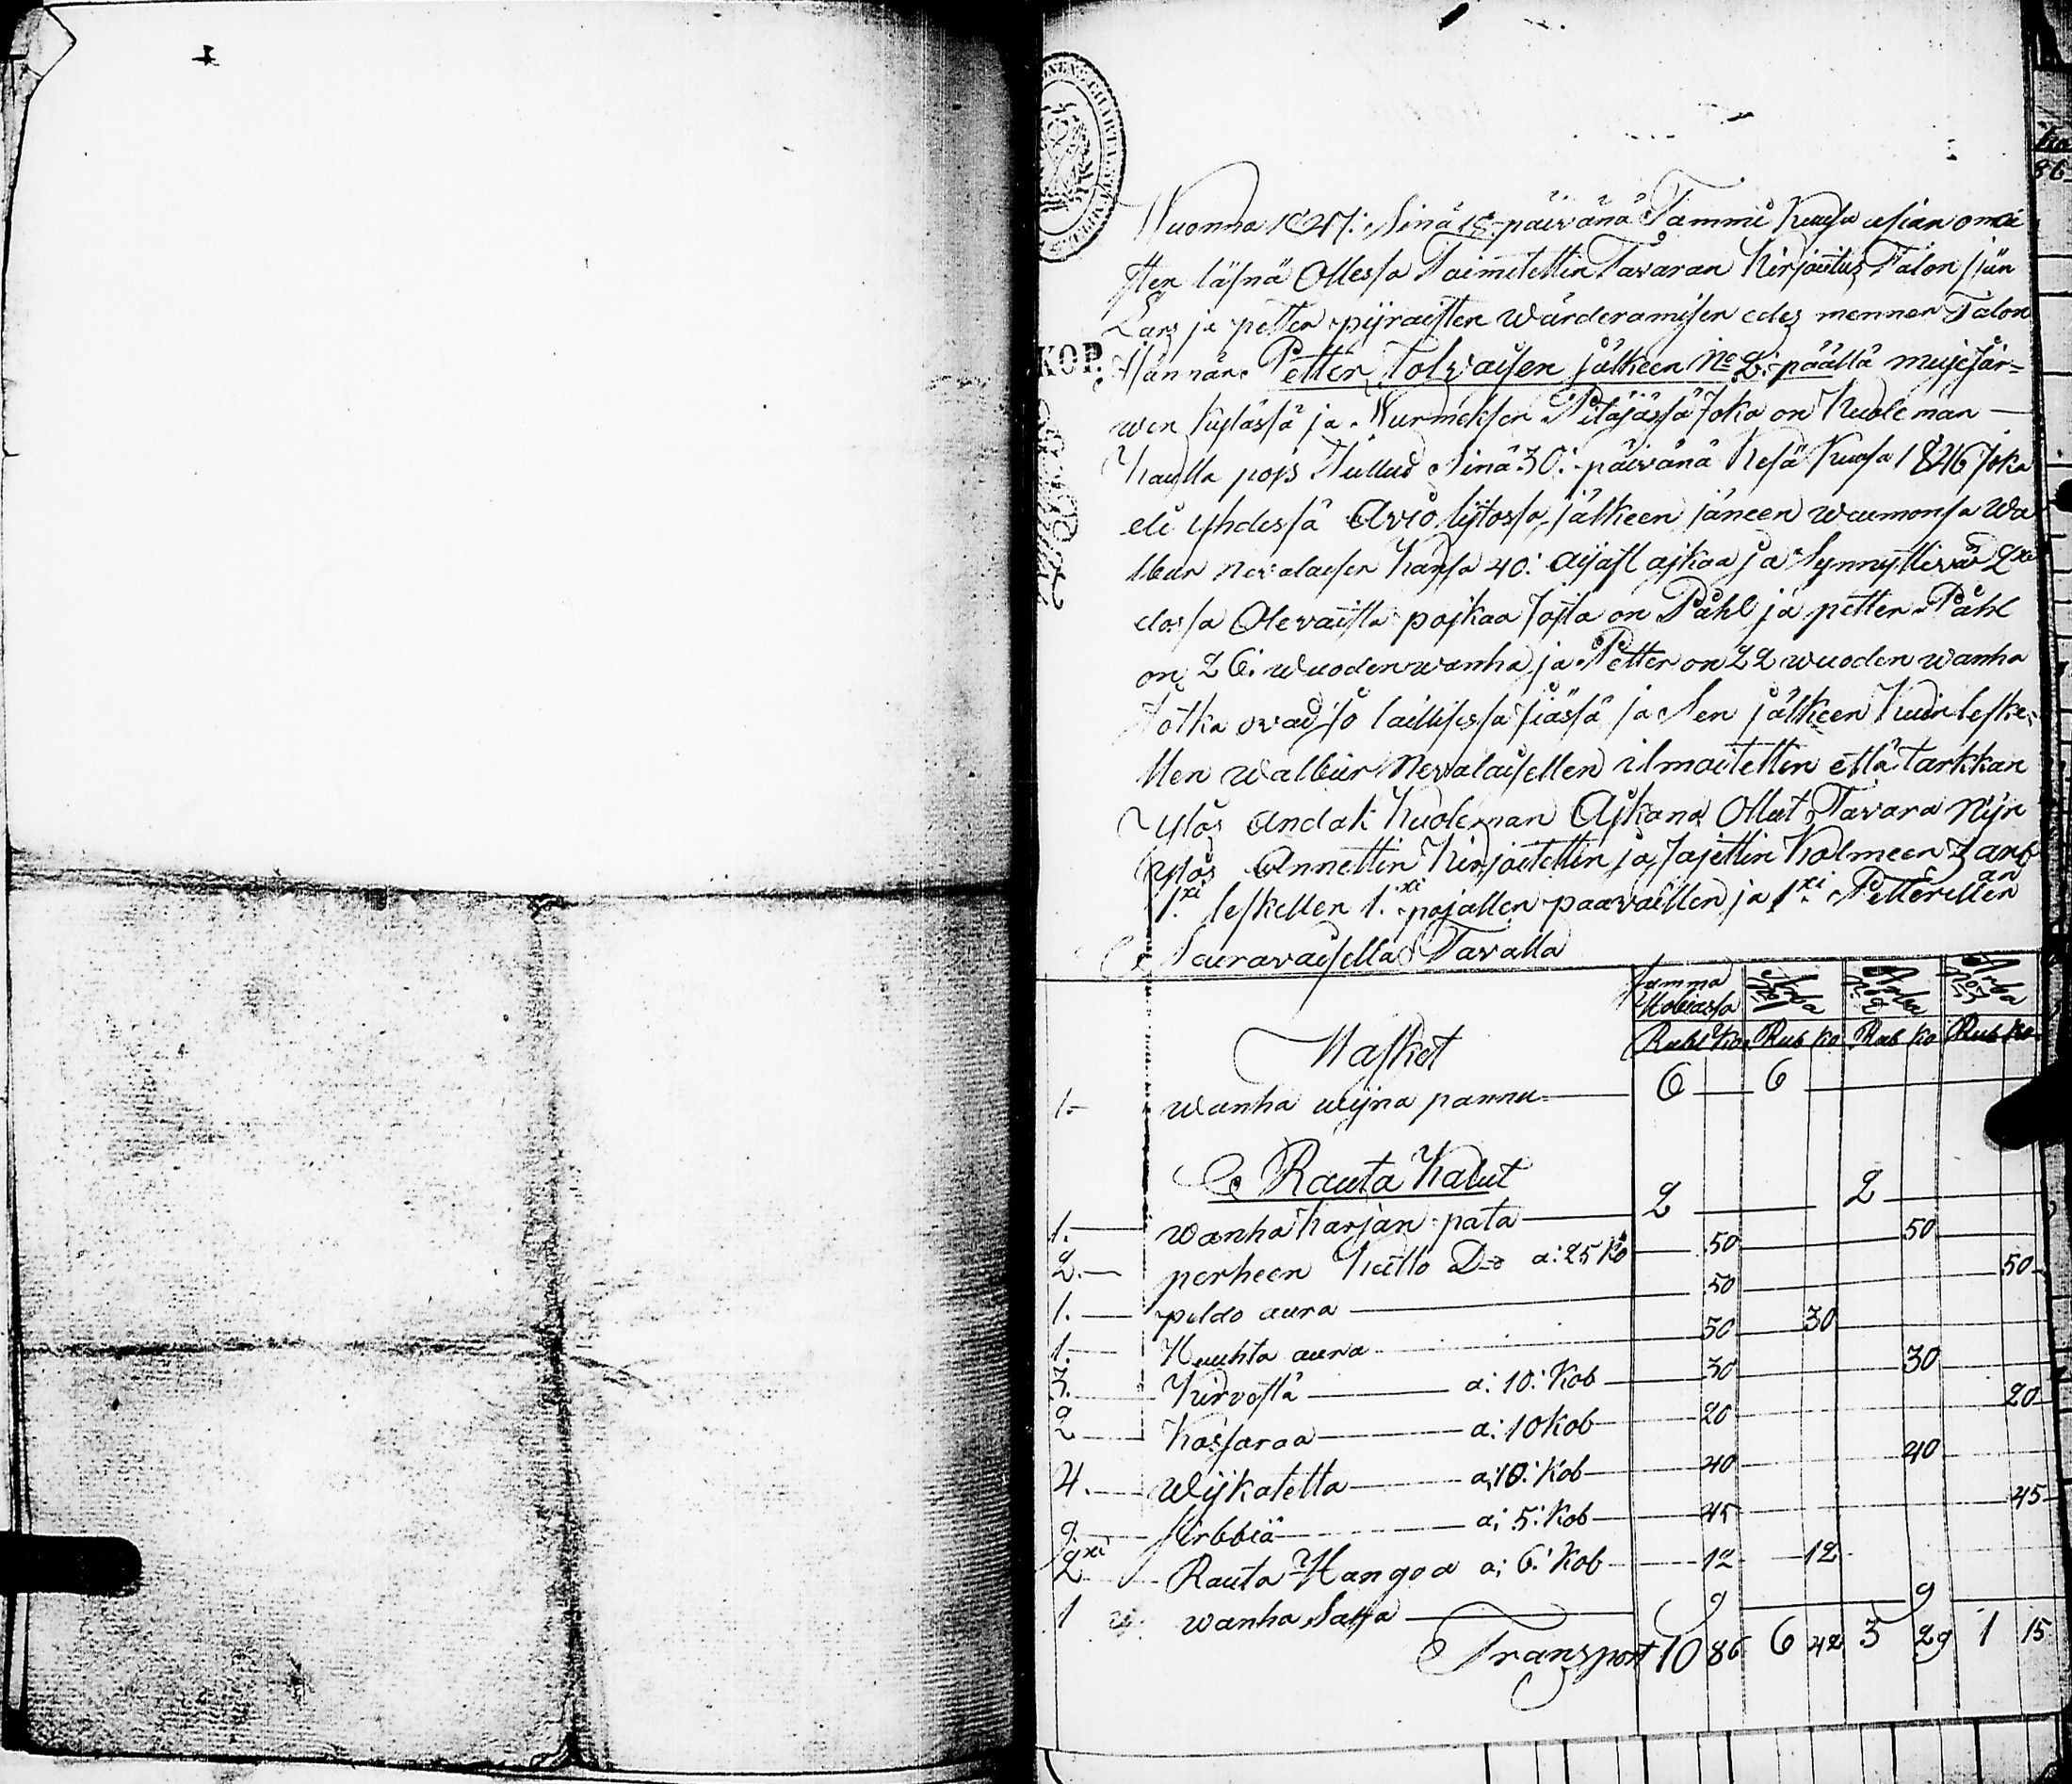 Wuonna 1847: Sinä 18: päivänä Tammi Kuusa asian omai
sten läsnä Ollessa Toimitettin Tavaran Kirjoitus Talon isän
Lars ja petter pijraisten wärderamisen edes mennen Talon
KOP. Isännän Petter Tolvaisen jälkeen No 2: päällä mujejär=
wen kylässä ja Nurmeksen Pitäjässä Joka on Kuoleman
Kautta pois Tullud Sinä 30: päivänä Kesä Kuusa 1846 Joka
eli yhdessä Avio lijtossa, jälkeen jäneen waimonsa Wa
lbur Nevalaisen Kansa 40: ajast ajkaa ja Synnyttivät 2xi
elossa Olevaista pojkaa Josta on Påhl ja petter Påhl
on 26: wuoden wanha ja Petter on 22 wuoden wanha
Jotka ovad jo laillisessa jiässä ja Sen jälkeen Kuin leske-
llen walbur Nevalaisellen ilmoitettin että tarkkan
Ylös andak Kuoleman Ajkana Ollut Tavara Nijn
Ylös Annettin Kirjoitettin ja Jajettin Kolmeen 3 arb
an
1.xi leskellen 1.xi pojallen paavalillen ja 1xi Petterillen
Seuravaisella Tavalla
Summa Arba Arba Arba
Hobiassa No 1 No 2 No 3
Rubl Ko Rub Ko Rub Ko Rub Ko
Wasket
1.- wanha wijna pannu 6 6
Rauta Kalut
1. wanha karjan pata 2 2
2. perheen Keitto Do a: 25 Ko 50 50
1. peldo aura 50 50
1. Huuhta aura 50 30
3. Kirvestä a: 10: Kob 30 30
2 Kassaraa a: 10 Kob 20 20
4. Wijkatetta a: 10: Kob 40 40
9. Sirbbiä a: 5: Kob 45 45
2xi Rauta Hangoa a: 6: Kob 12 12
1 wanha Saxa 9 9
Transport 10 86 6 42 3 29 1 15